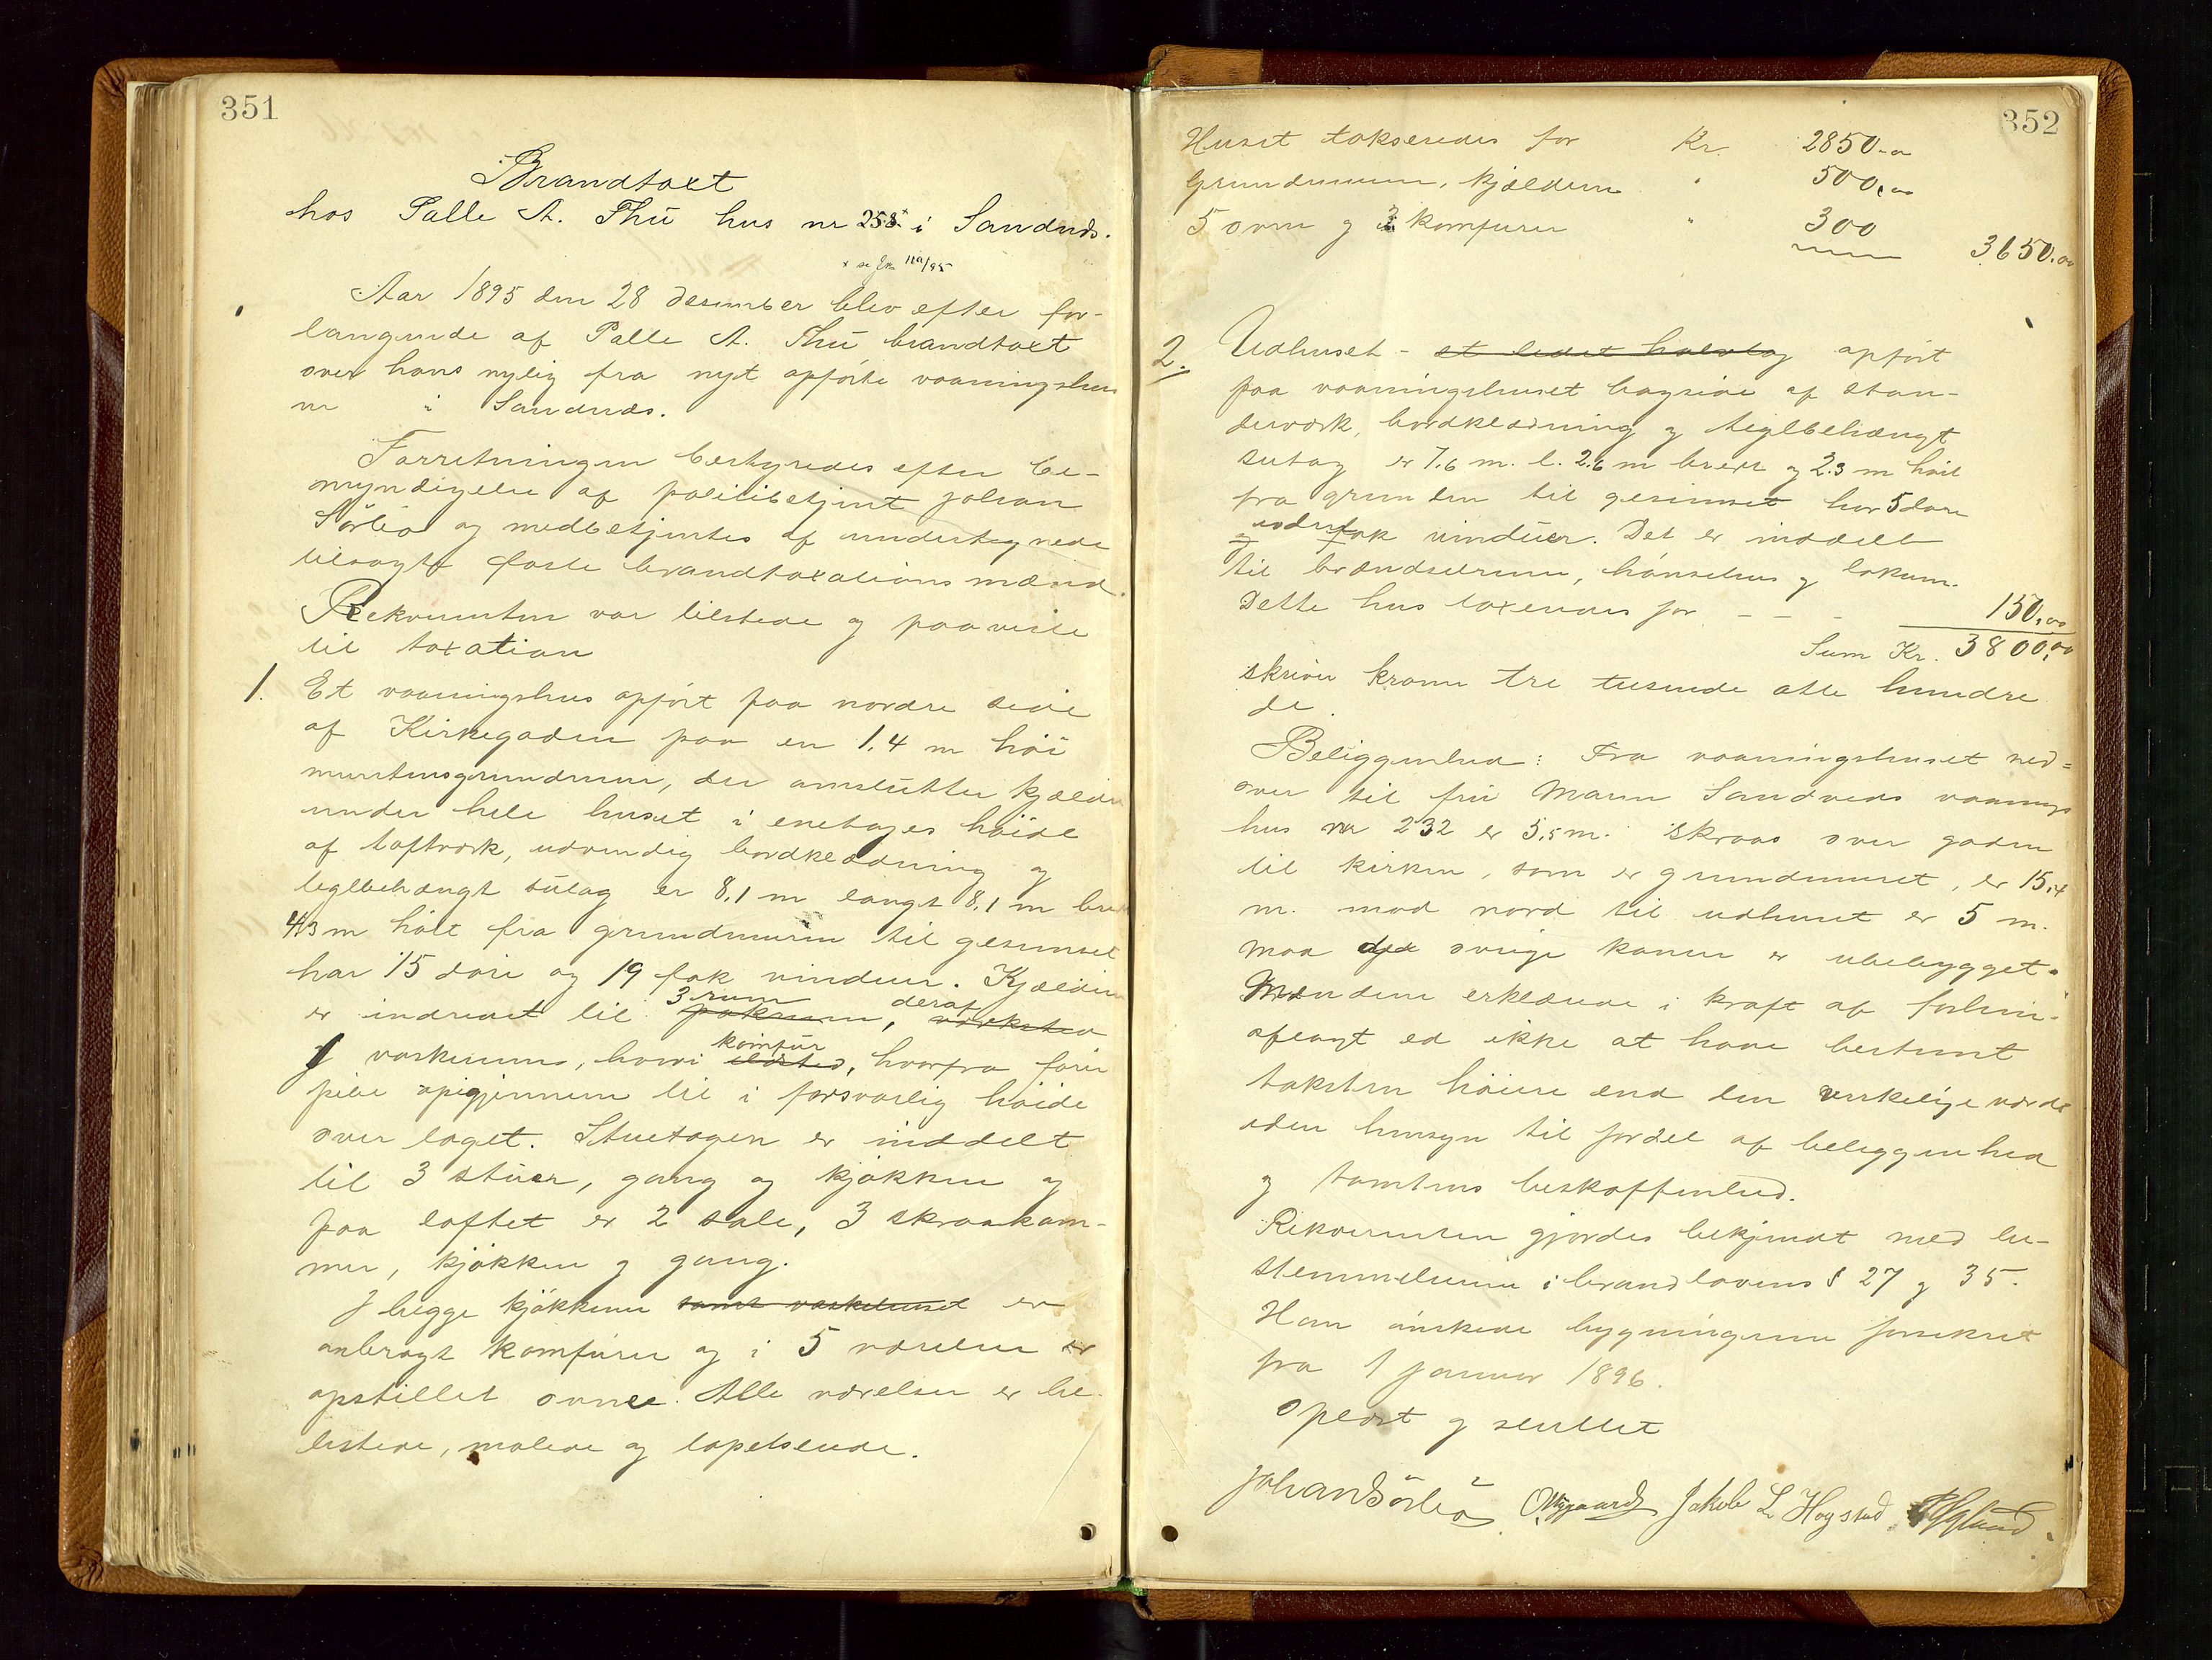 351
Brandtaxt
hos Palle A. Thü hus nr 258 x i Sandnds.
x
Aar 1895 den 28 desember blev efter for-
langende af Palle A. Thü brandtaxt
over hans nylig fra nyt opførte vaaningshus
nr i Sandnds.
Forretningen bestyredes efter be-
myndigelse af politibetjent Johan
Sörbö og medbetjentes af undertegnede
tilsagte faste brandtaxations mænd.
Rekvirenten var tilstede og paaviste
til taxation
1. Et vaaningshus opført paa nordre side
af Kirkegaden paa en 1.4 m høi
murstensgrundmur, der omslutter kjælder
under hele huset i enetages høide
af toftværk, udvendig bordklædning og
teglbehængt sutag er 8,1 m langt 8,1 m bredt
4.3 m høit fra grundmuren til gesimset
har 15 døre og 19 fak vinduer. Kjælderen
er indredet til 3 rum pakrum, deraf værksted
1 vaskerum, hvori komfür ildsted, hvorfra fører
pibe opigjennem til i forsvarlig høide
over taget. Stuetagen er inddelt
til 3 stüer, gang og kjøkken og
paa loftet er 2 sale, 3 skraakam-
mer, kjøkken og gang.
I begge kjøkkener samt vaskehuset er
anbragt komfürer og i 5 værelser er
opstillet ovne. Alle værelser er be-
listede, malede og tapetserede.
352
Huset takseredes for Kr. 2850.00
Grundmuren, kjælderen " 500,00
5 ovne og 3 komfurer " 300
3650.00
2. Udhuset - et ledet halvtag opført
paa vaaningshuset bagside af stan-
derværk, bordklædning og teglbehængt
sutag er 7.6 m. l. 2.6 m bredt og 2.3 m høit
fra grunden til gesimset har 5 døre
og fak vindüer. Det er inddelt
til brændselrum, hønsehus og lokum.
Dette hus taxeredes for - - - 150,00
Sum Kr. 3800,00
skriver kroner tre tusende otte hundre
de.
Beliggenhed: Fra vaaningshuset ned=
over til frü Maren Sandveds vaanings
hus nr 232 er 5,5 m. skraas over gaden
til kirken, som er grundmuret, er 15,4
m. mod nord til udhuset er 5 m.
Mod de øvrige kanter er ubebygget.
Mændene erklærede i kraft af forhen-
aflagt ed ikke at have bestemt
taksten høiere end den virkelige værdi
uden hensyn til fordel af beliggenhed
og tomtens beskaffenhed.
Rekvirenten gjordes bekjendt med be-
stemmelserne i brandlovens § 27 og 35.
Han ønskede bygningerne forsikret
fra 1 januar 1896.
Oplæst og sluttet
Johan Sörbö Jakob L Hogstad